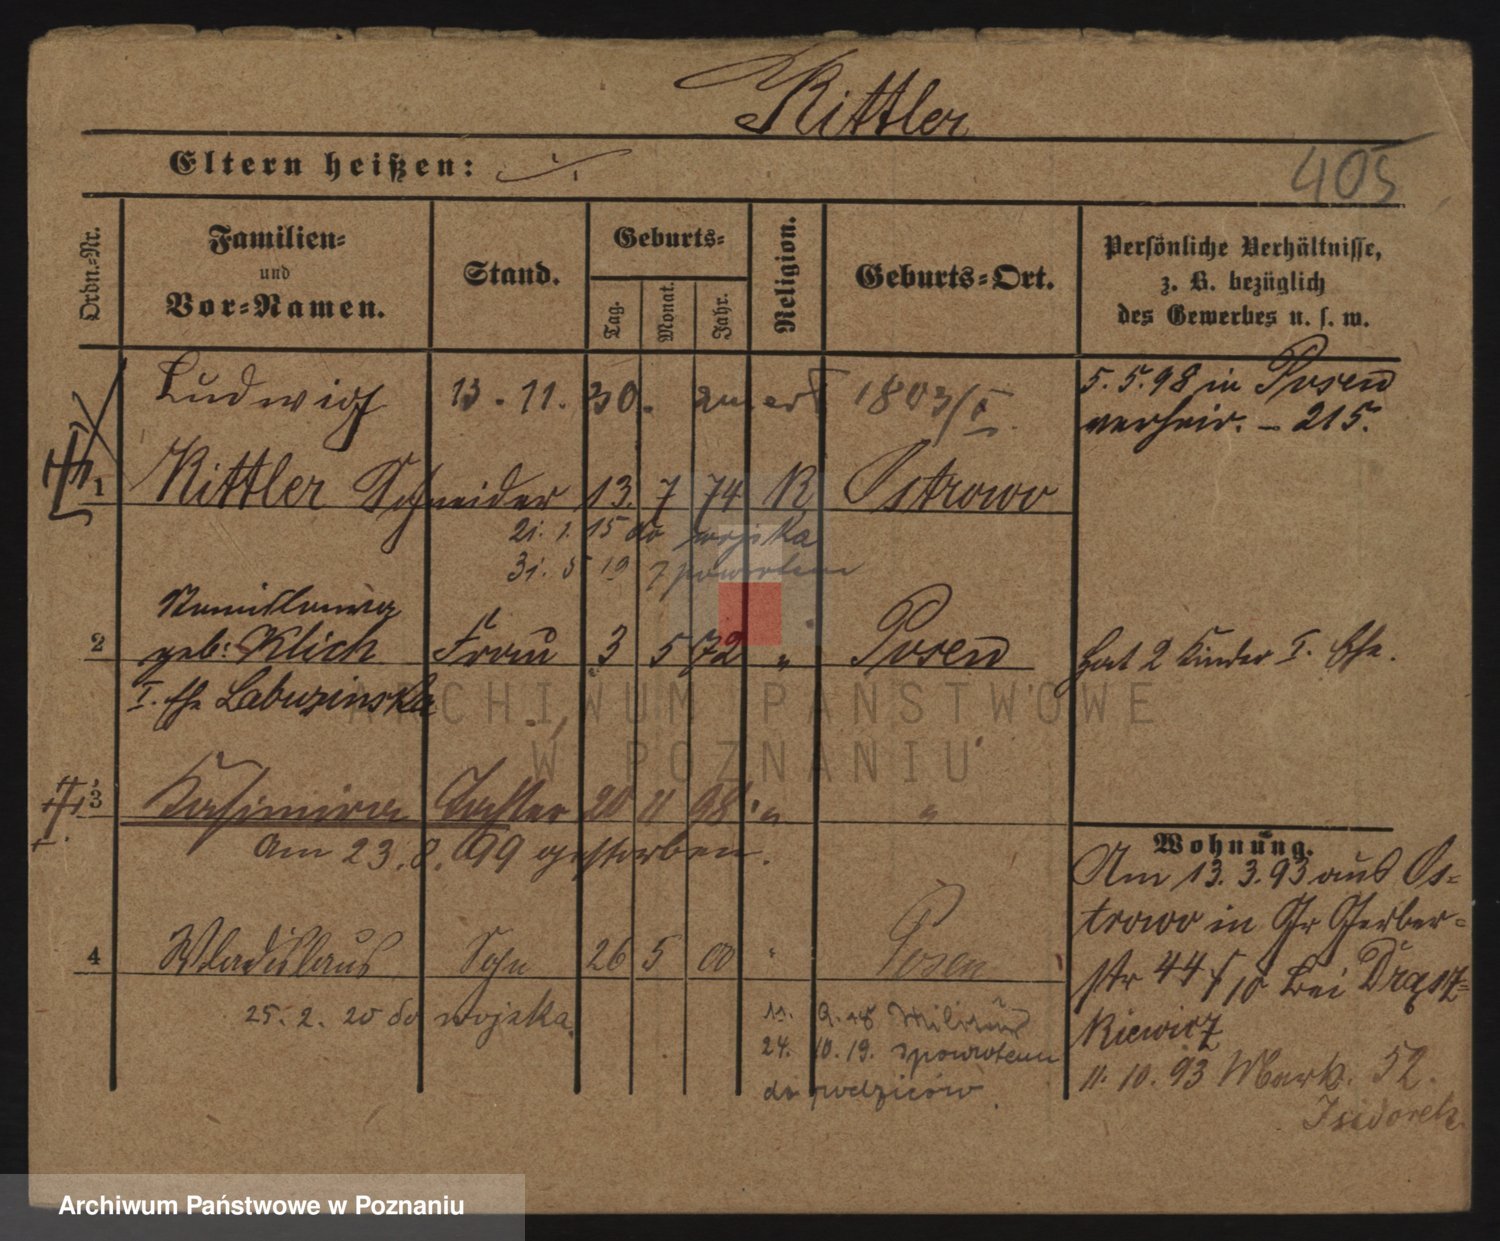 Rittler
Eltern heißen: ./.
405
Ordn.-Nr.
Familien-
und
Vor-Namen.
Stand.
Geburts-
Tag.
Monat.
Jahr.
Religion.
Geburts-Ort.
Persönliche Verhältnisse,
z. B. bezüglich
des Gewerbes u. s. w.
Ludwig 13. 11. 30. 1803/I
5. 5. 98 in Posen
verheir. – 215.
1 Rittler Schneider 13. 7 74 R Ostrowo
21. 1. 15 do wojska
31. 5 19 z powrotem
Stanislawa
2 geb: Klich Frau 3 5 72 " Posen
hat 2 Kinder I. Ehe.
I. Ehe Labuzinska
3 Kasimira Tochter 20 11 98 " "
Am 23. 8. 99 gestorben.
Wohnung.
Am 13. 3. 93 aus Os-
trowo in Gr Gerber-
str 44 bei
kiewicz
11. 10. 93 Mark. 52.
Isidorek
4 Wladislaus Sohn 26 5 00 " Posen
25. 2. 20 do wojska.
11. 9. 18 Militär
24. 10. 19. spowrotem
do rodziców.
ARCHIWUM PAŃSTWOWE
W POZNANIU
Archiwum Państwowe w Poznaniu